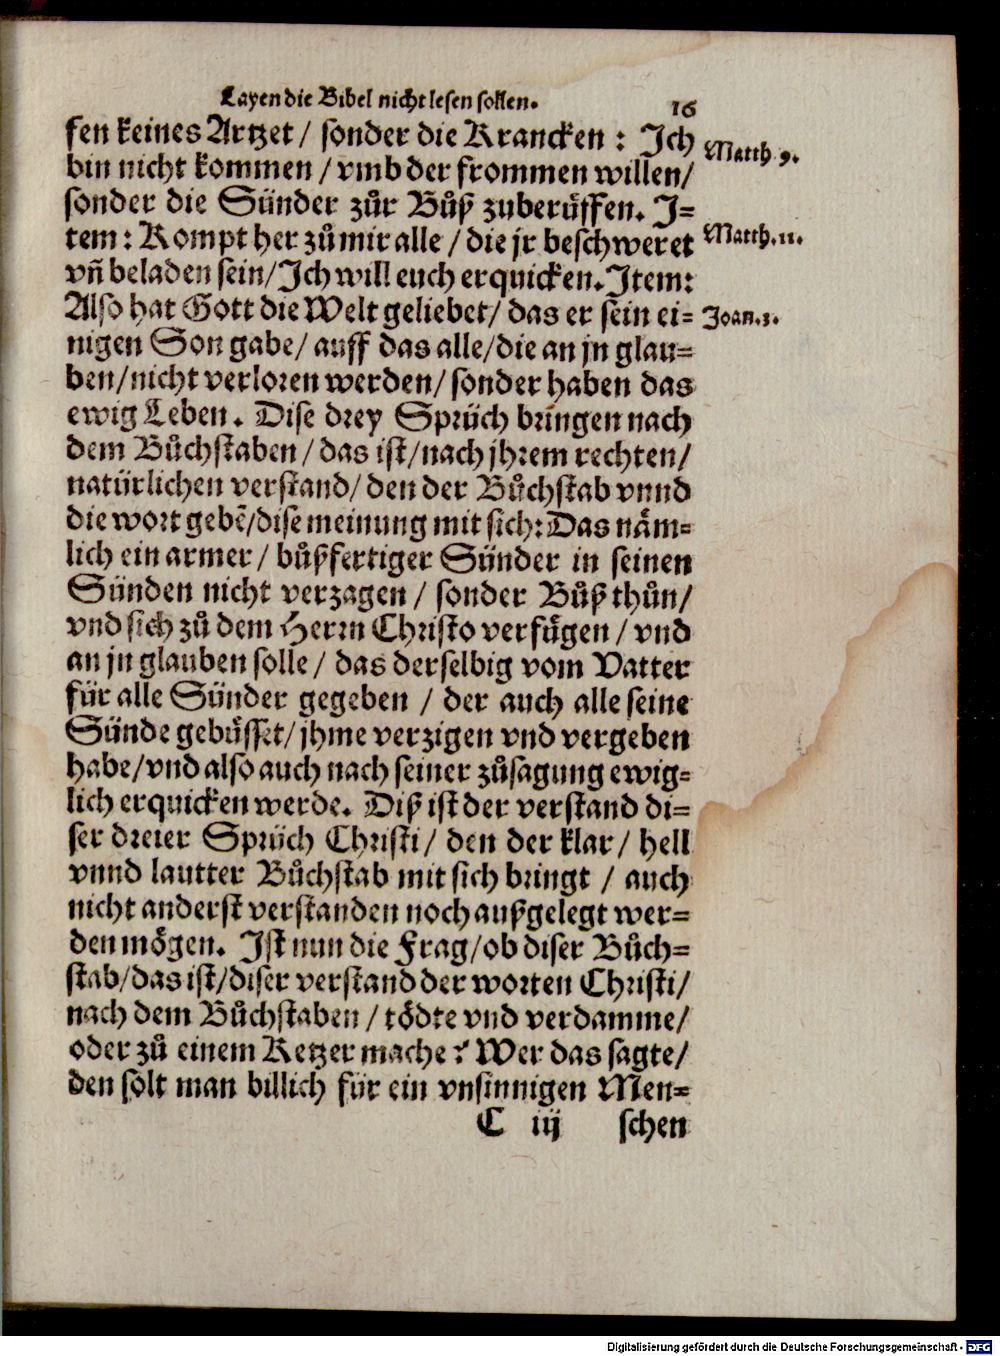 Layen die Bibel nicht lesen sollen.
16
fen keines Artzet / sonder die Krancken : Ich
Matth. 9.
bin nicht kommen / vmb der frommen willen/
sonder die Sünder zůr Bůß zuberůffen. J=
tem : Kompt her zů mir alle / die jr beschweret
Matth. 11.
vñ beladen sein/Ich will euch erquicken. Item:
Also hat Gott die Welt geliebet/ das er sein ei=
Joan. 3.
nigen Son gabe/ auff das alle/die an jn glau=
ben/nicht verloren werden/ sonder haben das
ewig Leben. Dise drey Sprüch bringen nach
dem Bůchstaben / das ist/nach jhrem rechten/
natürlichen verstand/ den der Bůchstab vnnd
die wort gebē/dise meinung mit sich: Das näm=
lich ein armer / bůßfertiger Sünder in seinen
Sünden nicht verzagen / sonder Bůß thůn/
vnd sich zů dem Herrn Christo verfůgen / vnd
an jn glauben solle / das derselbig vom Vatter
für alle Sünder gegeben / der auch alle seine
Sünde gebůsset/ jhme verzigen vnd vergeben
habe/vnd also auch nach seiner zůsagung ewig=
lich erquicken werde. Diß ist der verstand di=
ser dreier Sprüch Christi/ den der klar/ hell
vnnd lautter Bůchstab mit sich bringt / auch
nicht anderst verstanden noch außgelegt wer=
den mögen. Ist nun die Frag/ob diser Bůch=
stab/das ist/diser verstand der worten Christi/
nach dem Bůchstaben / tödte vnd verdamme/
oder zů einem Ketzer mache? Wer das sagte/
den solt man billich für ein vnsinnigen Men=
C iij schen
Digitalisierung gefördert durch die Deutsche Forschungsgemeinschaft - DFG